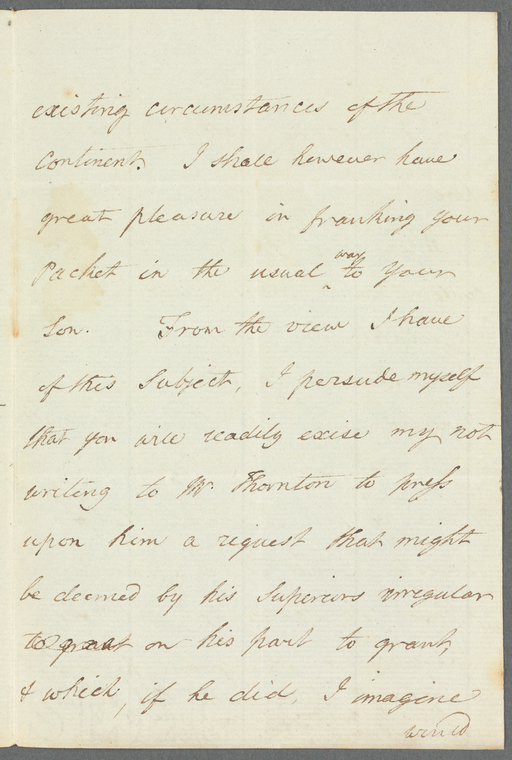 existing circumstances of the
Continent. I shall however have
great pleasure in franking your
Packet in the usual way to Your
Son. From the view I have
of this Subject, I persude myself
that you will readily excise my not
writing to Mr. Thornton to press
upon him a request that might
be deemed by his Superiors irregular
to grant on his part to grant,
& which, if he did, I imagine
would